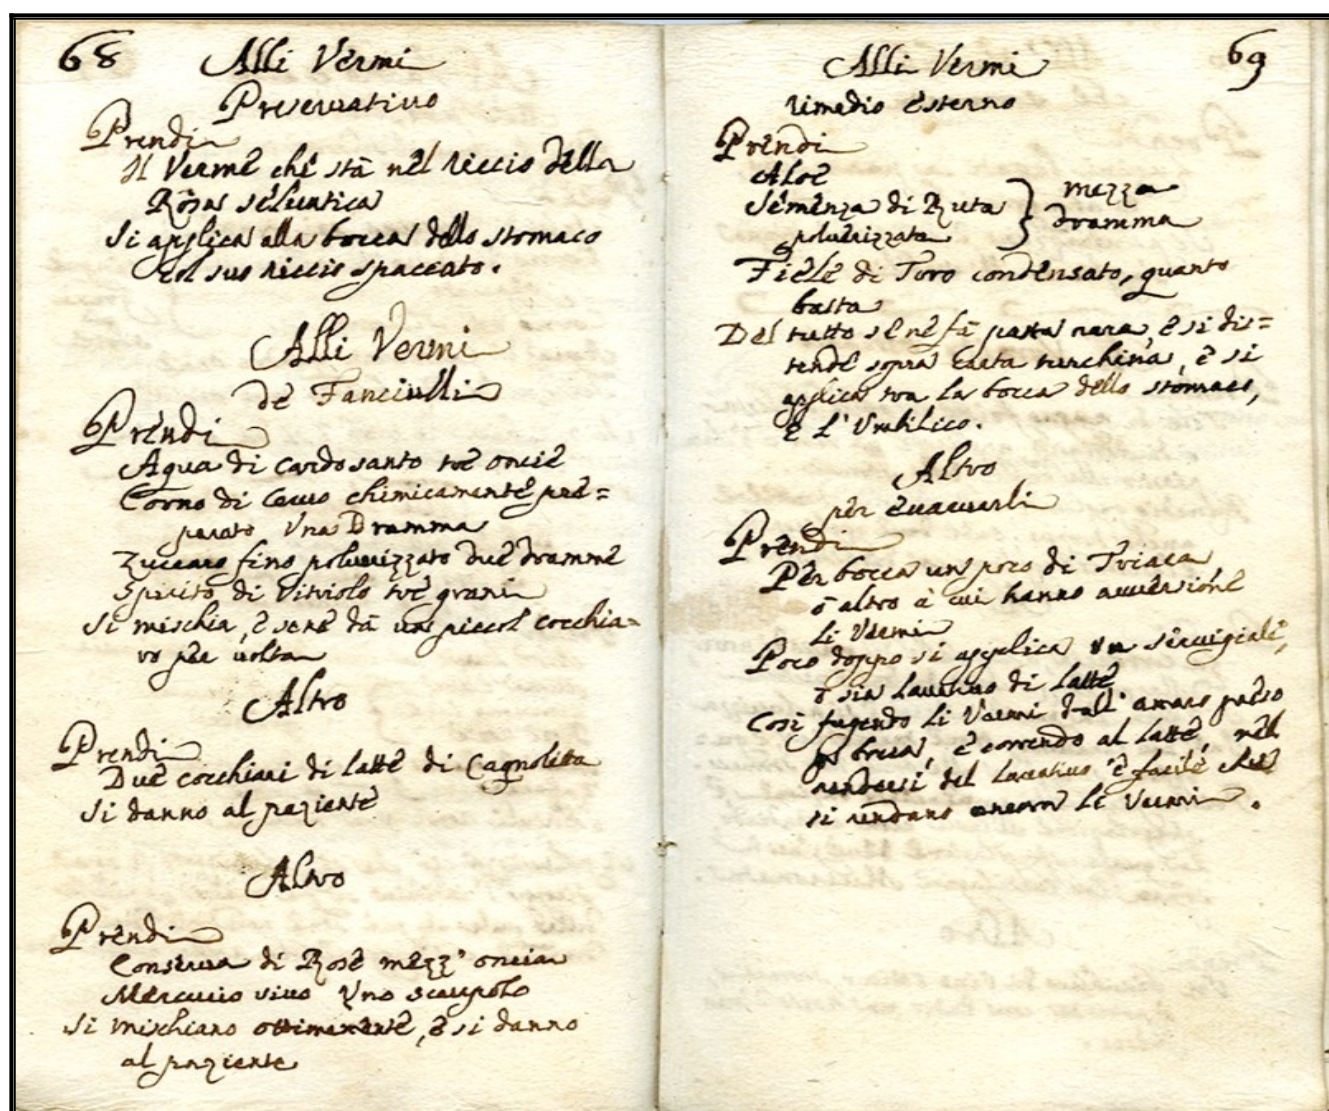 68
Alli Vermi
Preseruatiuo
Prendi
Il Verme che stà nel riccio della
Rosa seluatica
Si applica alla bocca dello stomaco
col suo riccio spaccato.
Alli Vermi
de Fanciulli
Prendi
Aqua di cardosanto tre oncie
Corno di Ceruo chimicamente pre=
parato Una Dramma
Zuccaro fino poluerizzato due dramme
Spirito di Vitriolo tre grani
Si mischia, e sene dà un piccol cocchia=
ro per uolta
Altro
Prendi
Due cocchiari di latte di Cagnoletta
Si danno al paziente
Altro
Prendi
Conserua di Rose mezz' oncia
Mercurio viuo Uno scrupolo
Si mischiano ottimamente, e si danno
al paziente
69
Alli Vermi
rimedio esterno
Prendi
Aloe
Semenza di Ruta } mezza
poluerizzata } dramma
Fiele di Toro condensato, quanto
basta
Del tutto se ne fà pasta rara, e si dis=
tende sopra Carta turchina, e si
applica tra la bocca dello stomaco,
e l' Umbilico.
Altro
per euacuarli
Prendi
Per bocca un poco di Triaca
ò altro à cui hanno auuersione
li Vermi
Poco doppo si applica un seruigiale,
ò sia lauatiuo di latte
Cosi fugendo li Vermi dall' amaro preso
per bocca, e correndo al latte, nel
rendersi del lauatiuo è facile che
si rendano ancora li Vermi.